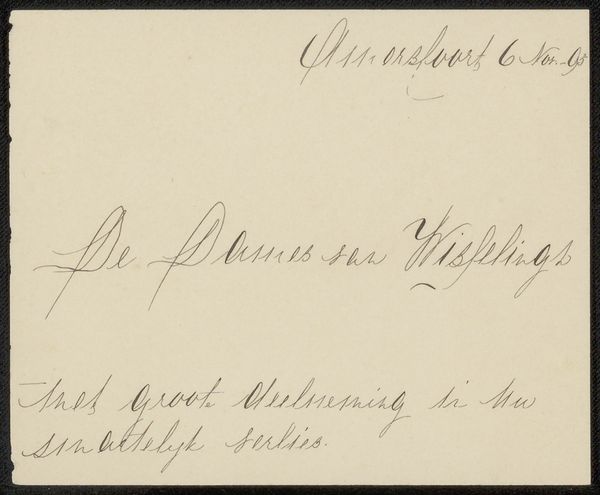 Amersfoort 6 Nov. 95
De Dames van Wisselingh
met groote deelneming in Uw
smartelyk verlies.